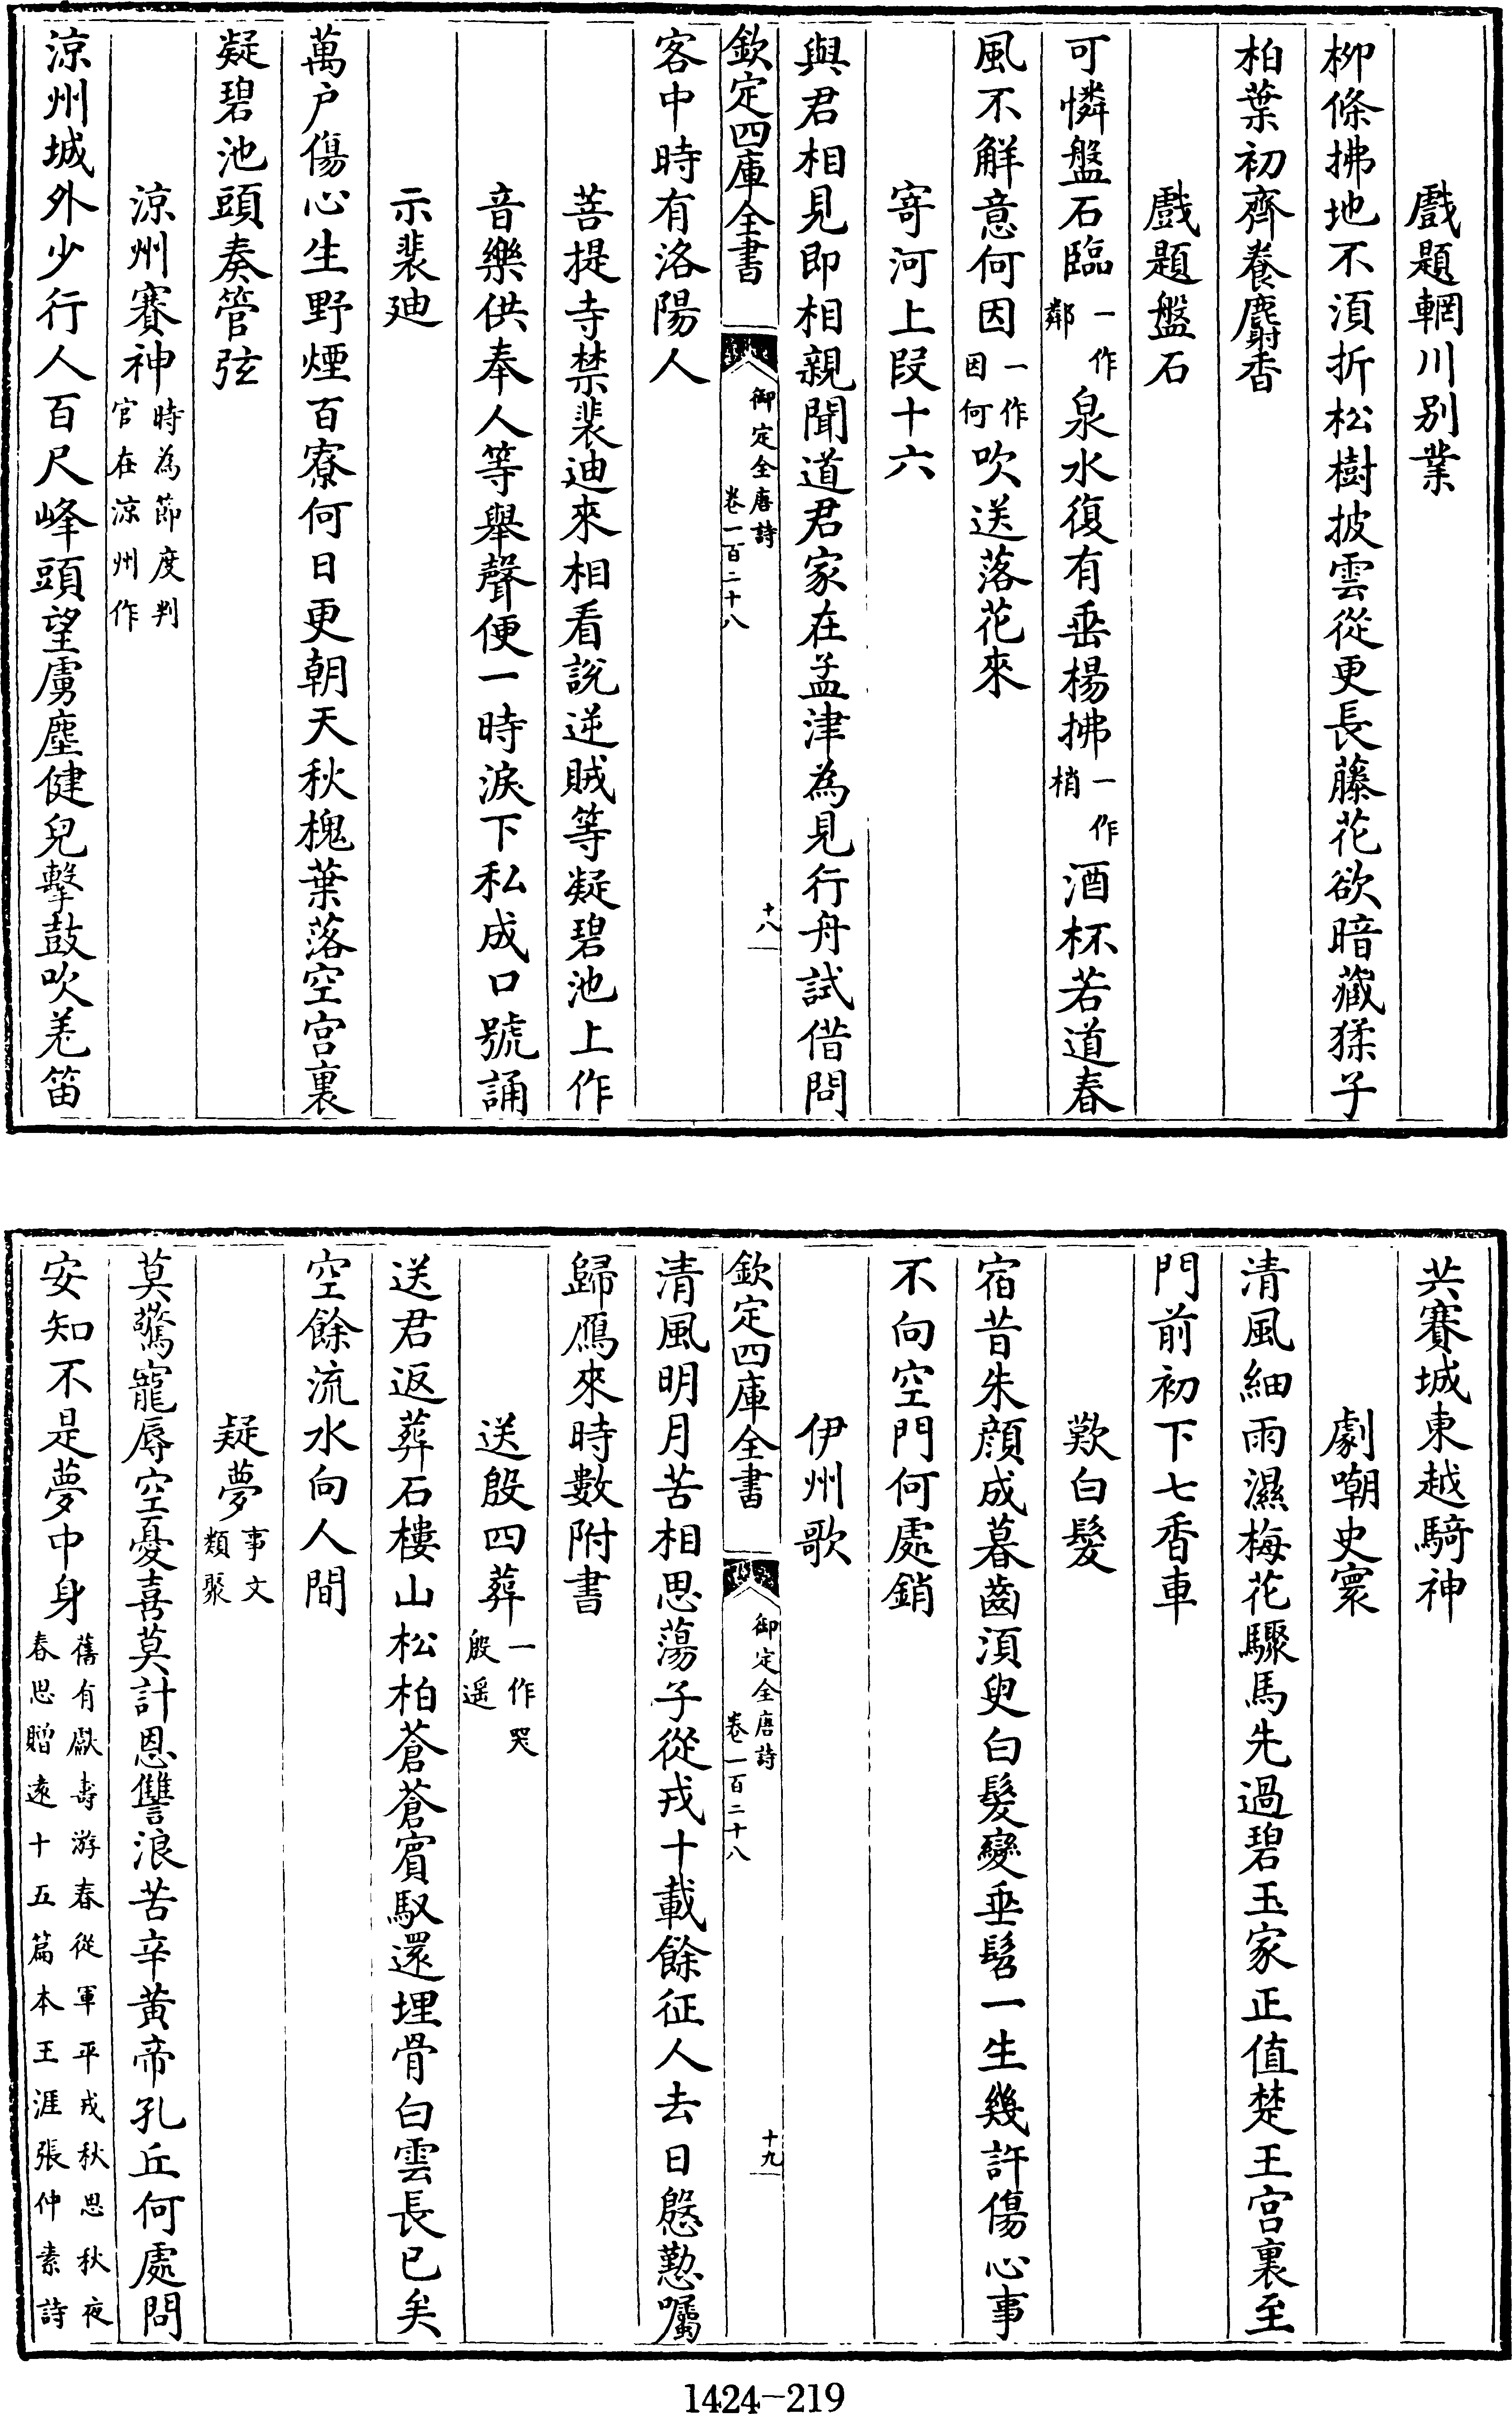 戲題輞川别業
柳條拂地不湏折松樹披雲從更長藤花欲暗藏猱子
柏葉初齊養麝香
戲題盤石
可憐盤石臨一作鄰泉水復有垂楊拂一作梢酒杯若道春
風不解意何因一作因何吹送落花來
寄河上段十六
與君相見即相親聞道君家在孟津為見行舟試借問
欽定四庫全書
御定全唐詩
卷一百二十八
十八
客中時有洛陽人
菩提寺禁裴迪來相看說逆賊等凝碧池上作
音樂供奉人等舉聲便一時淚下私成口號誦
示裴迪
萬户傷心生野煙百寮何日更朝天秋槐葉落空宫裏
凝碧池頭奏管弦
涼州賽神時為節度判官在涼州作
涼州城外少行人百尺峰頭望虜塵健兒擊鼓吹羌笛
共賽城東越騎神
劇嘲史寰
清風細雨濕梅花驟馬先過碧玉家正值楚王宫裏至
門前初下七香車
歎白髮
宿昔朱顏成暮齒湏臾白髮變垂髫一生幾許傷心事
不向空門何處銷
伊州歌
欽定四庫全書
御定全唐詩
卷一百二十八
十九
清風明月苦相思蕩子從戎十載餘征人去日慇懃囑
歸鴈來時數附書
送殷四葬一作哭殷遥
送君返葬石樓山松柏蒼蒼賓馭還埋骨白雲長已矣
空餘流水向人間
疑夢事文類聚
莫驚寵辱空憂喜莫計恩讐浪苦辛黄帝孔丘何處問
安知不是夢中身舊有獻壽游春從軍平戎秋思秋夜春思贈遠十五篇本王涯張仲素詩
1424-219